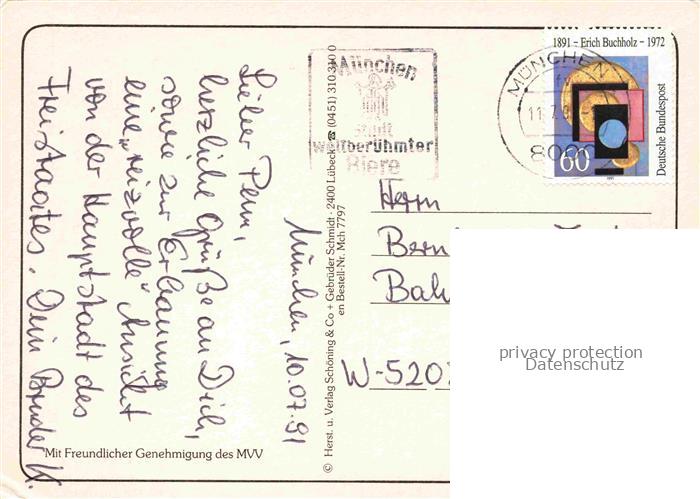 München, 10.07.91
herzliche Grüße an Dich,
sowie zur Erbauung
eine „reizvolle" Ansicht
von der Hauptstadt des
Freistaates. Dein Bruder K.
Mit Freundlicher Genehmigung des MVV
© Herst. u. Verlag Schöning & Co + Gebrüder Schmidt · 2400 Lübeck ☎ (0451) 310 310 0
en Bestell-Nr. Mch 7797
München
Stadt
weltberühmter
Biere
MÜNCHEN
11.7.
8000
1891 – Erich Buchholz – 1972
Deutsche Bundespost
60
1991
Herrn
W-520
privacy protection
Datenschutz